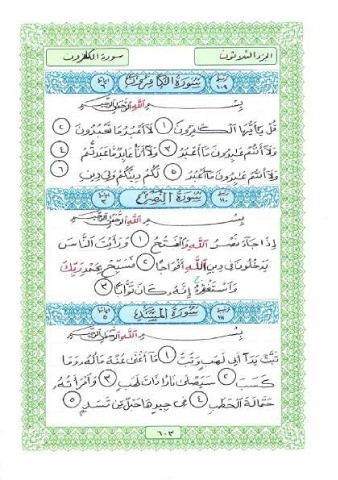 الجزء الثلاثون
سورة الكافرون
ترتيبها ١٠٩ سورة الكافرون آياتها ٦
بسم الله الرحمن الرحيم
قل يأيها الكفرون ١ لا أعبد ما تعبدون ٢
ولا أنتم عبدون ما أعبد ٣ ولا أنا عابد ما عبدتم ٤
ولا أنتم عبدون ما أعبد ٥ لكم دينكم ولي دين ٦
ترتيبها ١١٠ سورة النصر آياتها ٣
بسم الله الرحمن الرحيم
إذا جاء نصر الله والفتح ١ ورأيت الناس
يدخلون في دين الله أفواجا ٢ فسبح بحمد ربك
واستغفره إنه كان توابا ٣
ترتيبها ١١١ سورة المسد آياتها ٥
بسم الله الرحمن الرحيم
تبت يدا أبي لهب وتب ١ ما أغنى عنه ماله وما
كسب ٢ سيصلى نارا ذات لهب ٣ وامرأته
حمالة الحطب ٤ في جيدها حبل من مسد ٥
٦٠٣